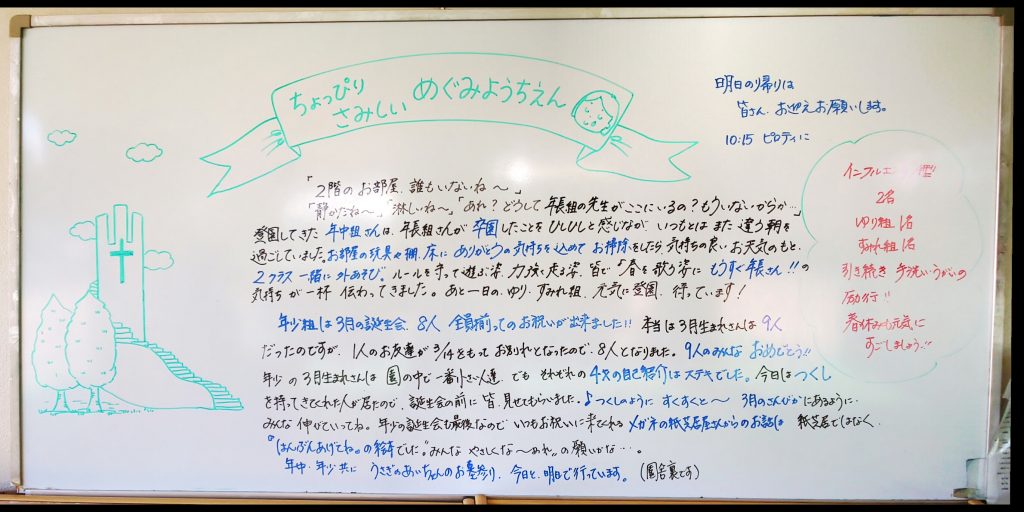 ちょっぴり
さみしい めぐみようちえん
明日の帰りは
皆さん、お迎えお願いします。
10:15 ピロティに
「2階のお部屋、誰もいないね〜」
「静かだね〜」「淋しいね〜」「あれ?どうして年長組の先生がここにいるの?もういないからか…」
登園してきた 年中組さんは、年長組さんが 卒園したことをひしひしと感じながら いつもとはまた違う朝を
過ごしていました。お部屋の玩具や棚、床に ありがとうの気持ちを込めて お掃除をしたら 気持ちの良いお天気のもと、
2クラス一緒に外あそび。ルールを守って遊ぶ姿、力強く走る姿、皆で「春を歌う姿に もうすぐ年長さん!!の
気持ちが一杯 伝わってきました。あと一日の、ゆり・すみれ組、元気に登園、待っています!
年少組は3月の誕生会、8人 全員揃ってのお祝いが出来ました!! 本当は3月生まれさんは 9人
だったのですが、1人のお友達が 3/ をもって お別れとなったので、8人となりました。9人のみんな おめでとう!!
年少の3月生まれさんは 園の中で一番小さい人達 でも それぞれの 4才の自己紹介は ステキでした。今日は つくし
を持ってきてくれた人が居たので、誕生会の前に 皆、見せてもらいました。♪つくしのように すくすくと〜 3月のさんびかにあるように…
みんな 伸びていってね。年少の誕生会も最後なので いつもお祝いに来てくれる メガネの紙芝居屋さんからのお話は 紙芝居ではなく、
"はんぶんあげてね"の絵本でした。"みんな やさしくな〜あれ"の願いかな…。
年中・年少共に うさぎのあいちゃんのお墓参り、今日と、明日で行っています。(園舎裏です)
インフルエンザ
2名
ゆり組 1名
すみれ組 1名
引き続き 手洗いうがいの
励行!!
春休みも元気に
すごしましょう!!